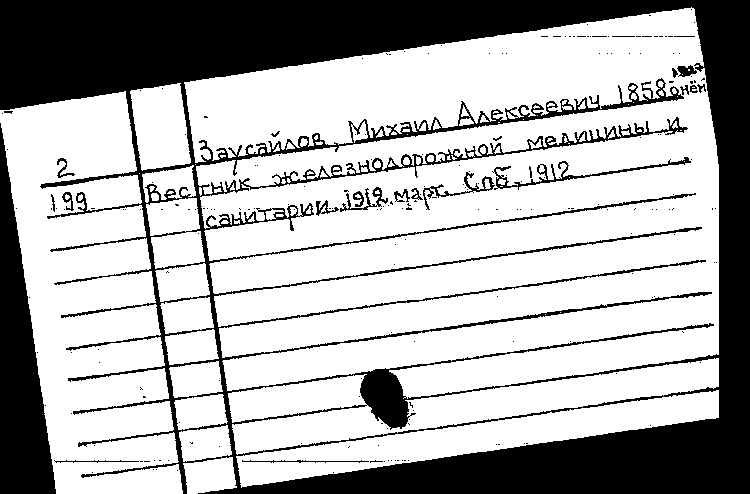 2 Заусайлов, Михаил Алексеевич 1858
199 Вестник железнодорожной медицины и
санитарии. 1912 март. Спб., 1912